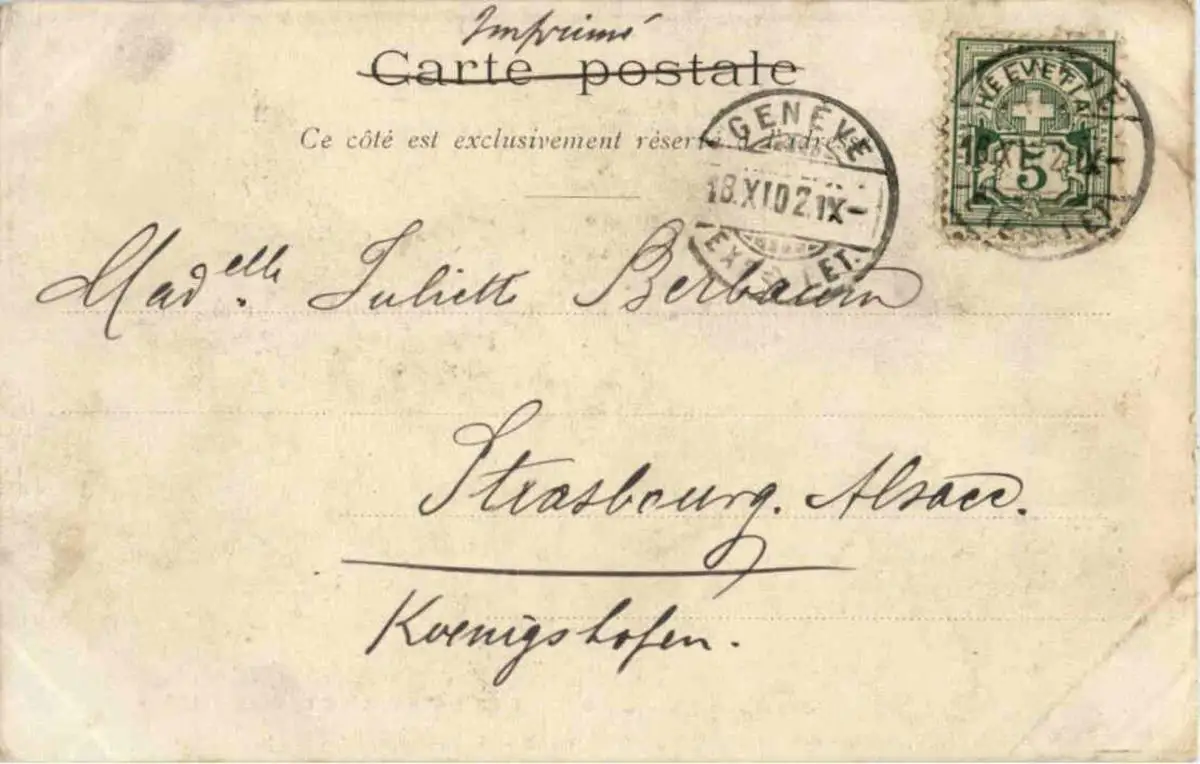 Imprimé
Carte postale
Ce côté est exclusivement réservé à l'adresse
HELVETIA
5
GENÈVE
18.XI.02.IX-
EXP. LET.
Madelle. Juliette Berbaum
Strasbourg. Alsace.
Koenigshofen.